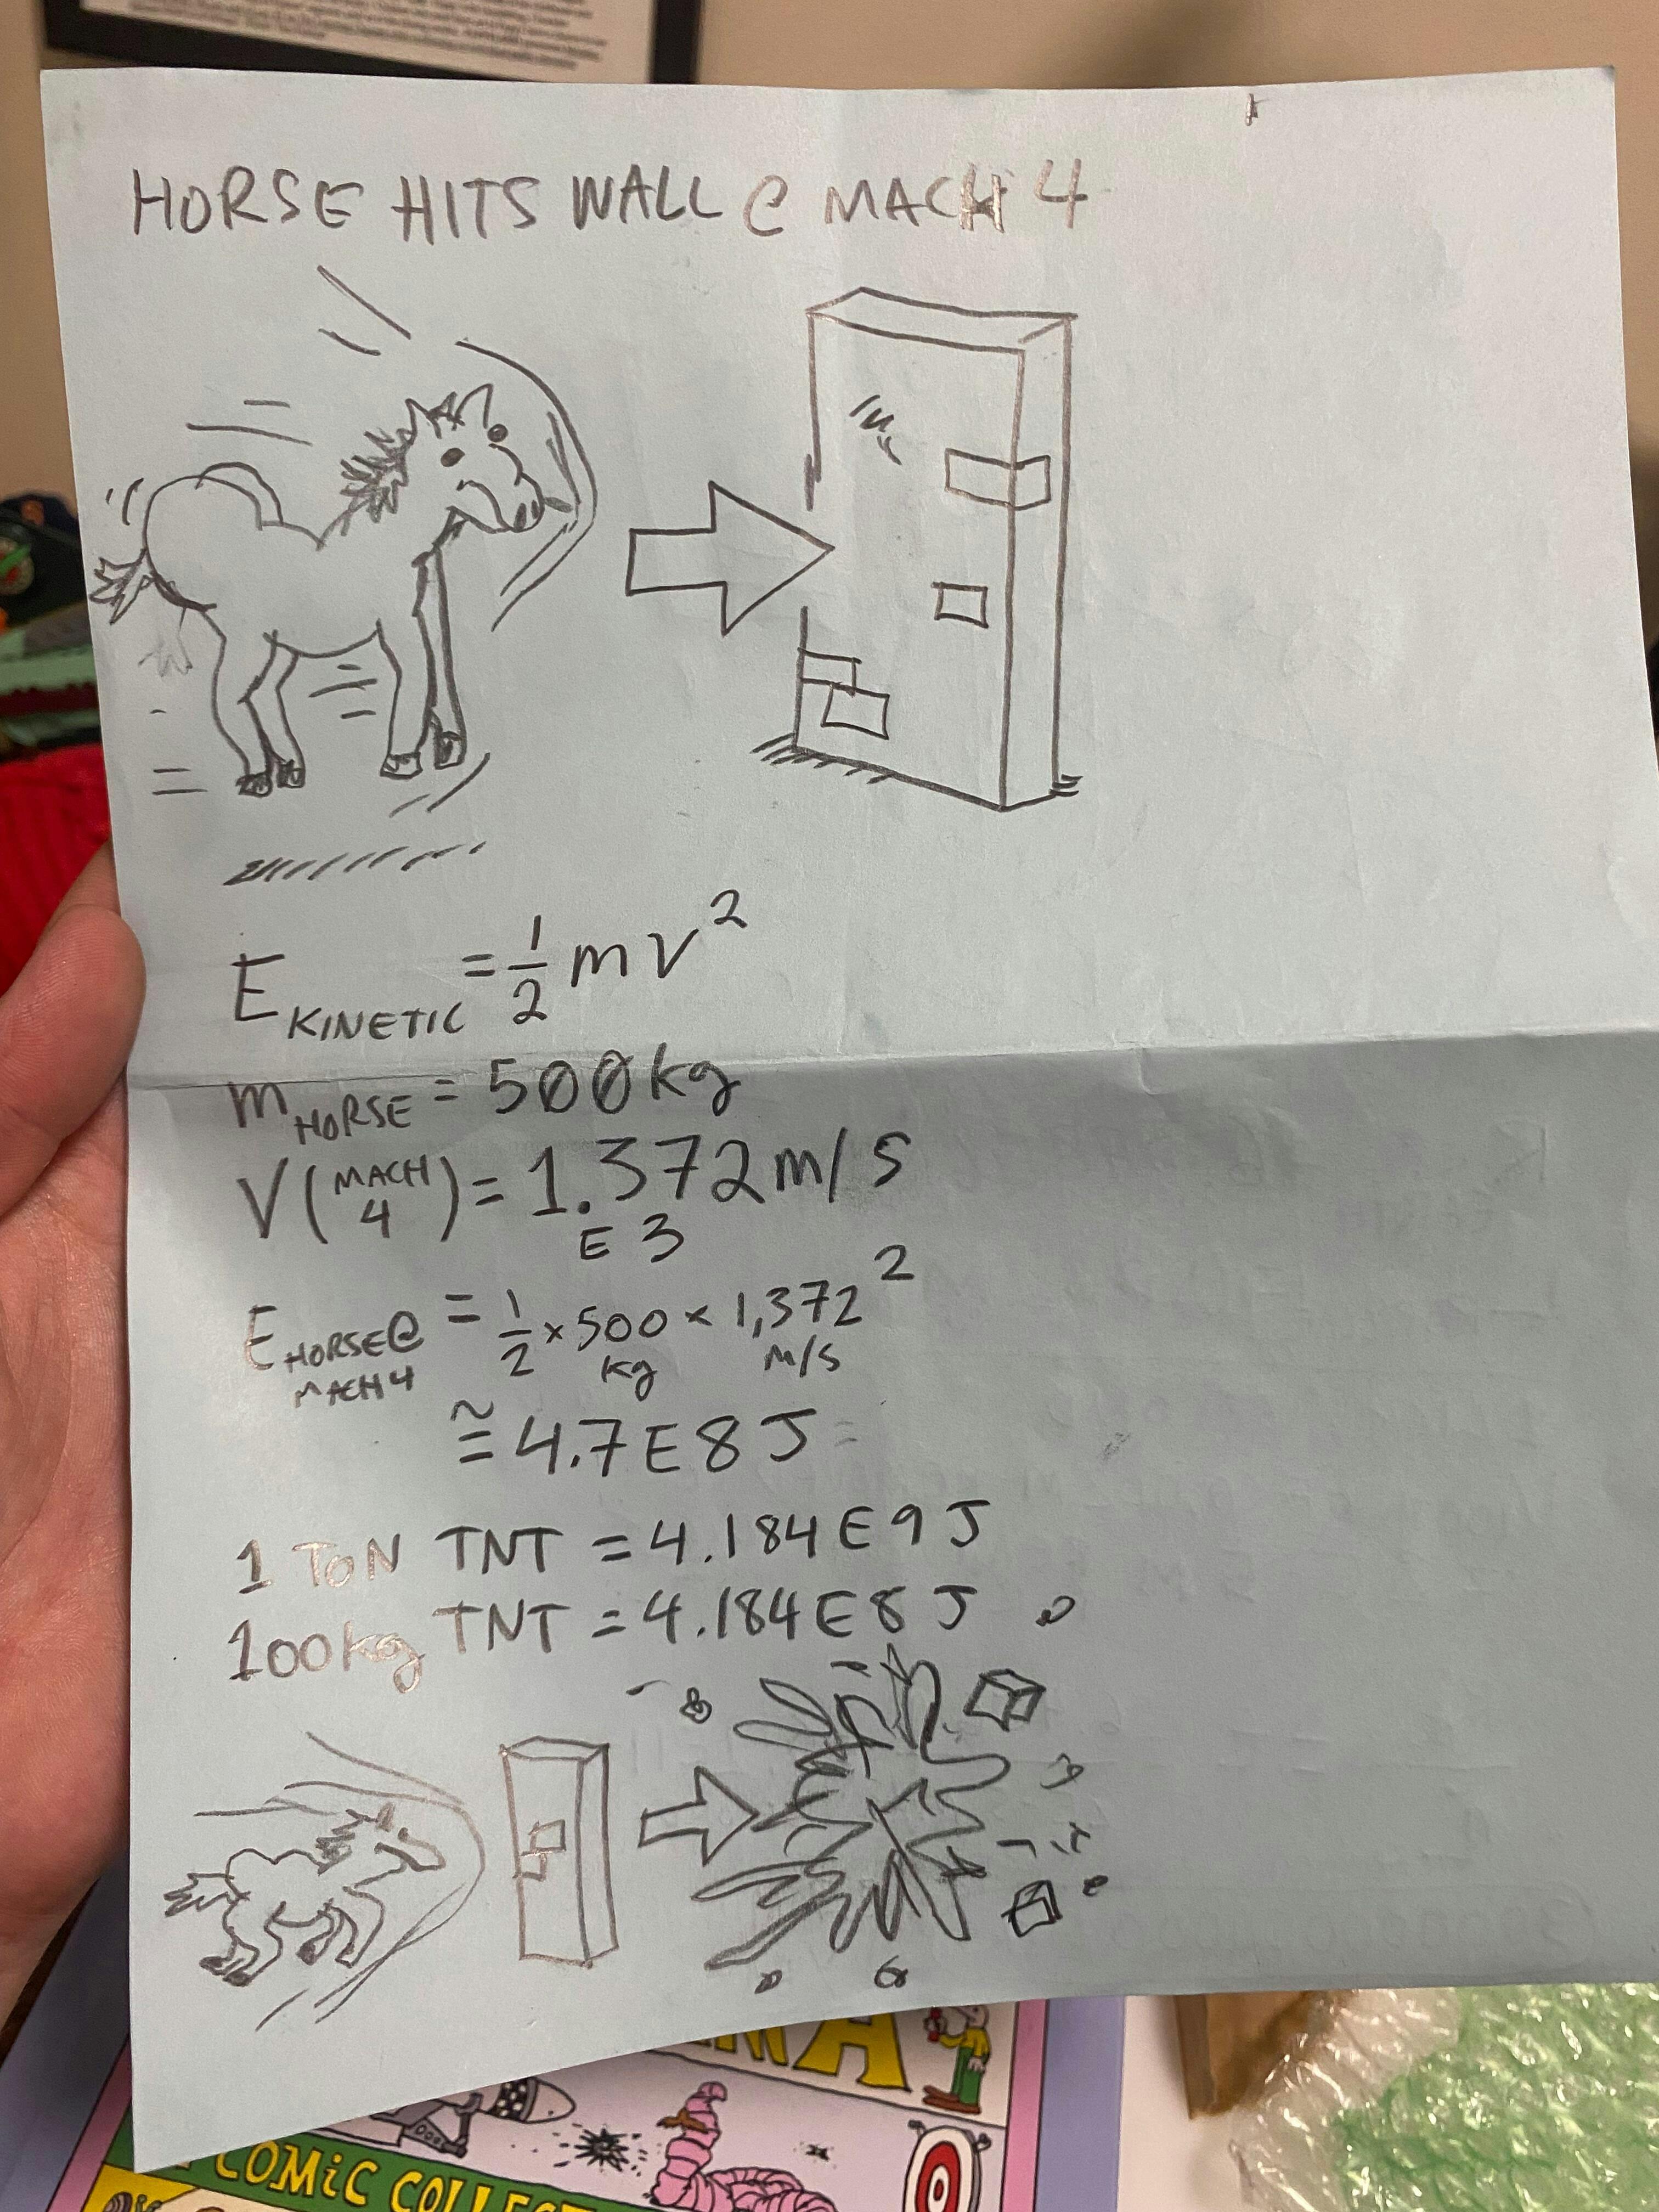 HORSE HITS WALL @ MACH 4
E KINETIC = 1/2 mv²
m HORSE = 500 kg
V (MACH 4) = 1.372 m/s
E 3
E HORSE@ MACH 4 = 1/2 × 500 kg × 1,372 m/s ²
≅ 4.7 E 8 J
1 TON TNT = 4.184 E 9 J
100 kg TNT = 4.184 E 8 J
COMiC COLLEC